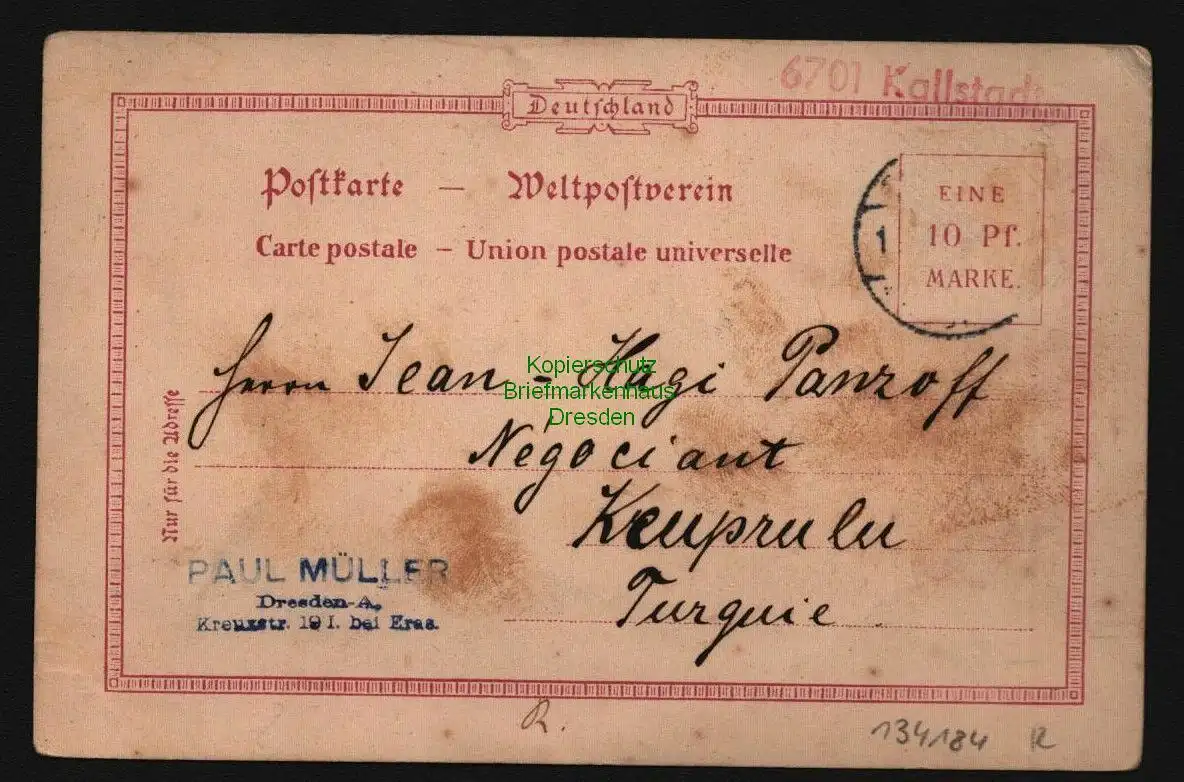 6701 Kallstadt
Deutschland
Postkarte — Weltpostverein
Carte postale – Union postale universelle
EINE
10 Pf.
MARKE.
1
Herrn Jean - Hagi Panzoff
Négociant
Keuprulu
Turquie
Nur für die Adresse
Kopierschutz
Briefmarkenhaus
Dresden
PAUL MÜLLER
Dresden-A.
Kreuzstr. 19 I. bei Eras.
R.
134184 R